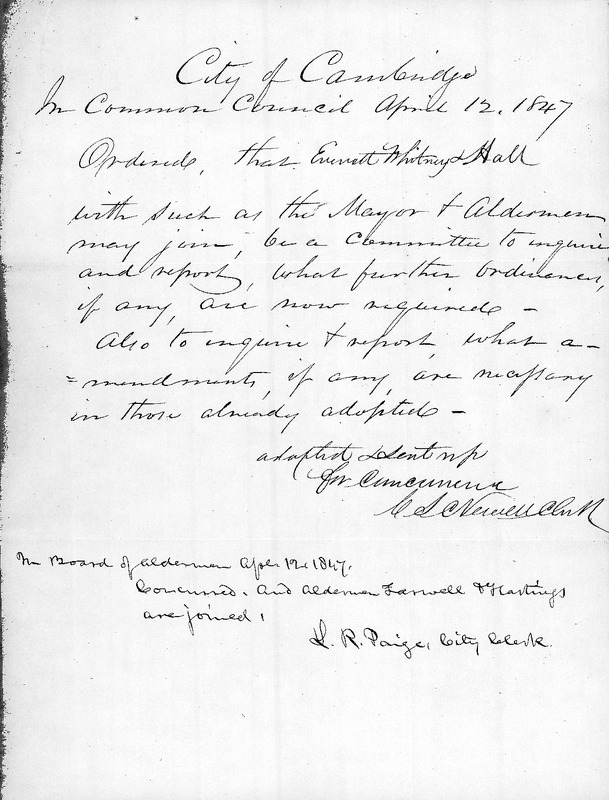 City of Cambridge
In Common Council April 12, 1847
Ordered, that Everett Whitney & Hall
with such as the Mayor & Aldermen
may join, be a Committee to inquire
and report, what further Ordinances,
if any, are now required -
Also to inquire & report, what a-
=mendments, if any, are necessary
in those already adopted -
adopted & sent up
for Concurrence
Newell Clerk
In Board of Aldermen Apl. 12, 1847.
Concurred. And Aldermen Farwell & Hastings
are joined.
L. R. Paige, City Clerk.